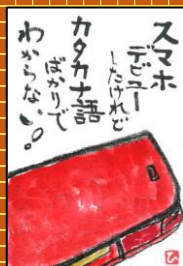 スマホ
デビュー
したけれど
カタカナ語
ばかりで
わからない。
ひ